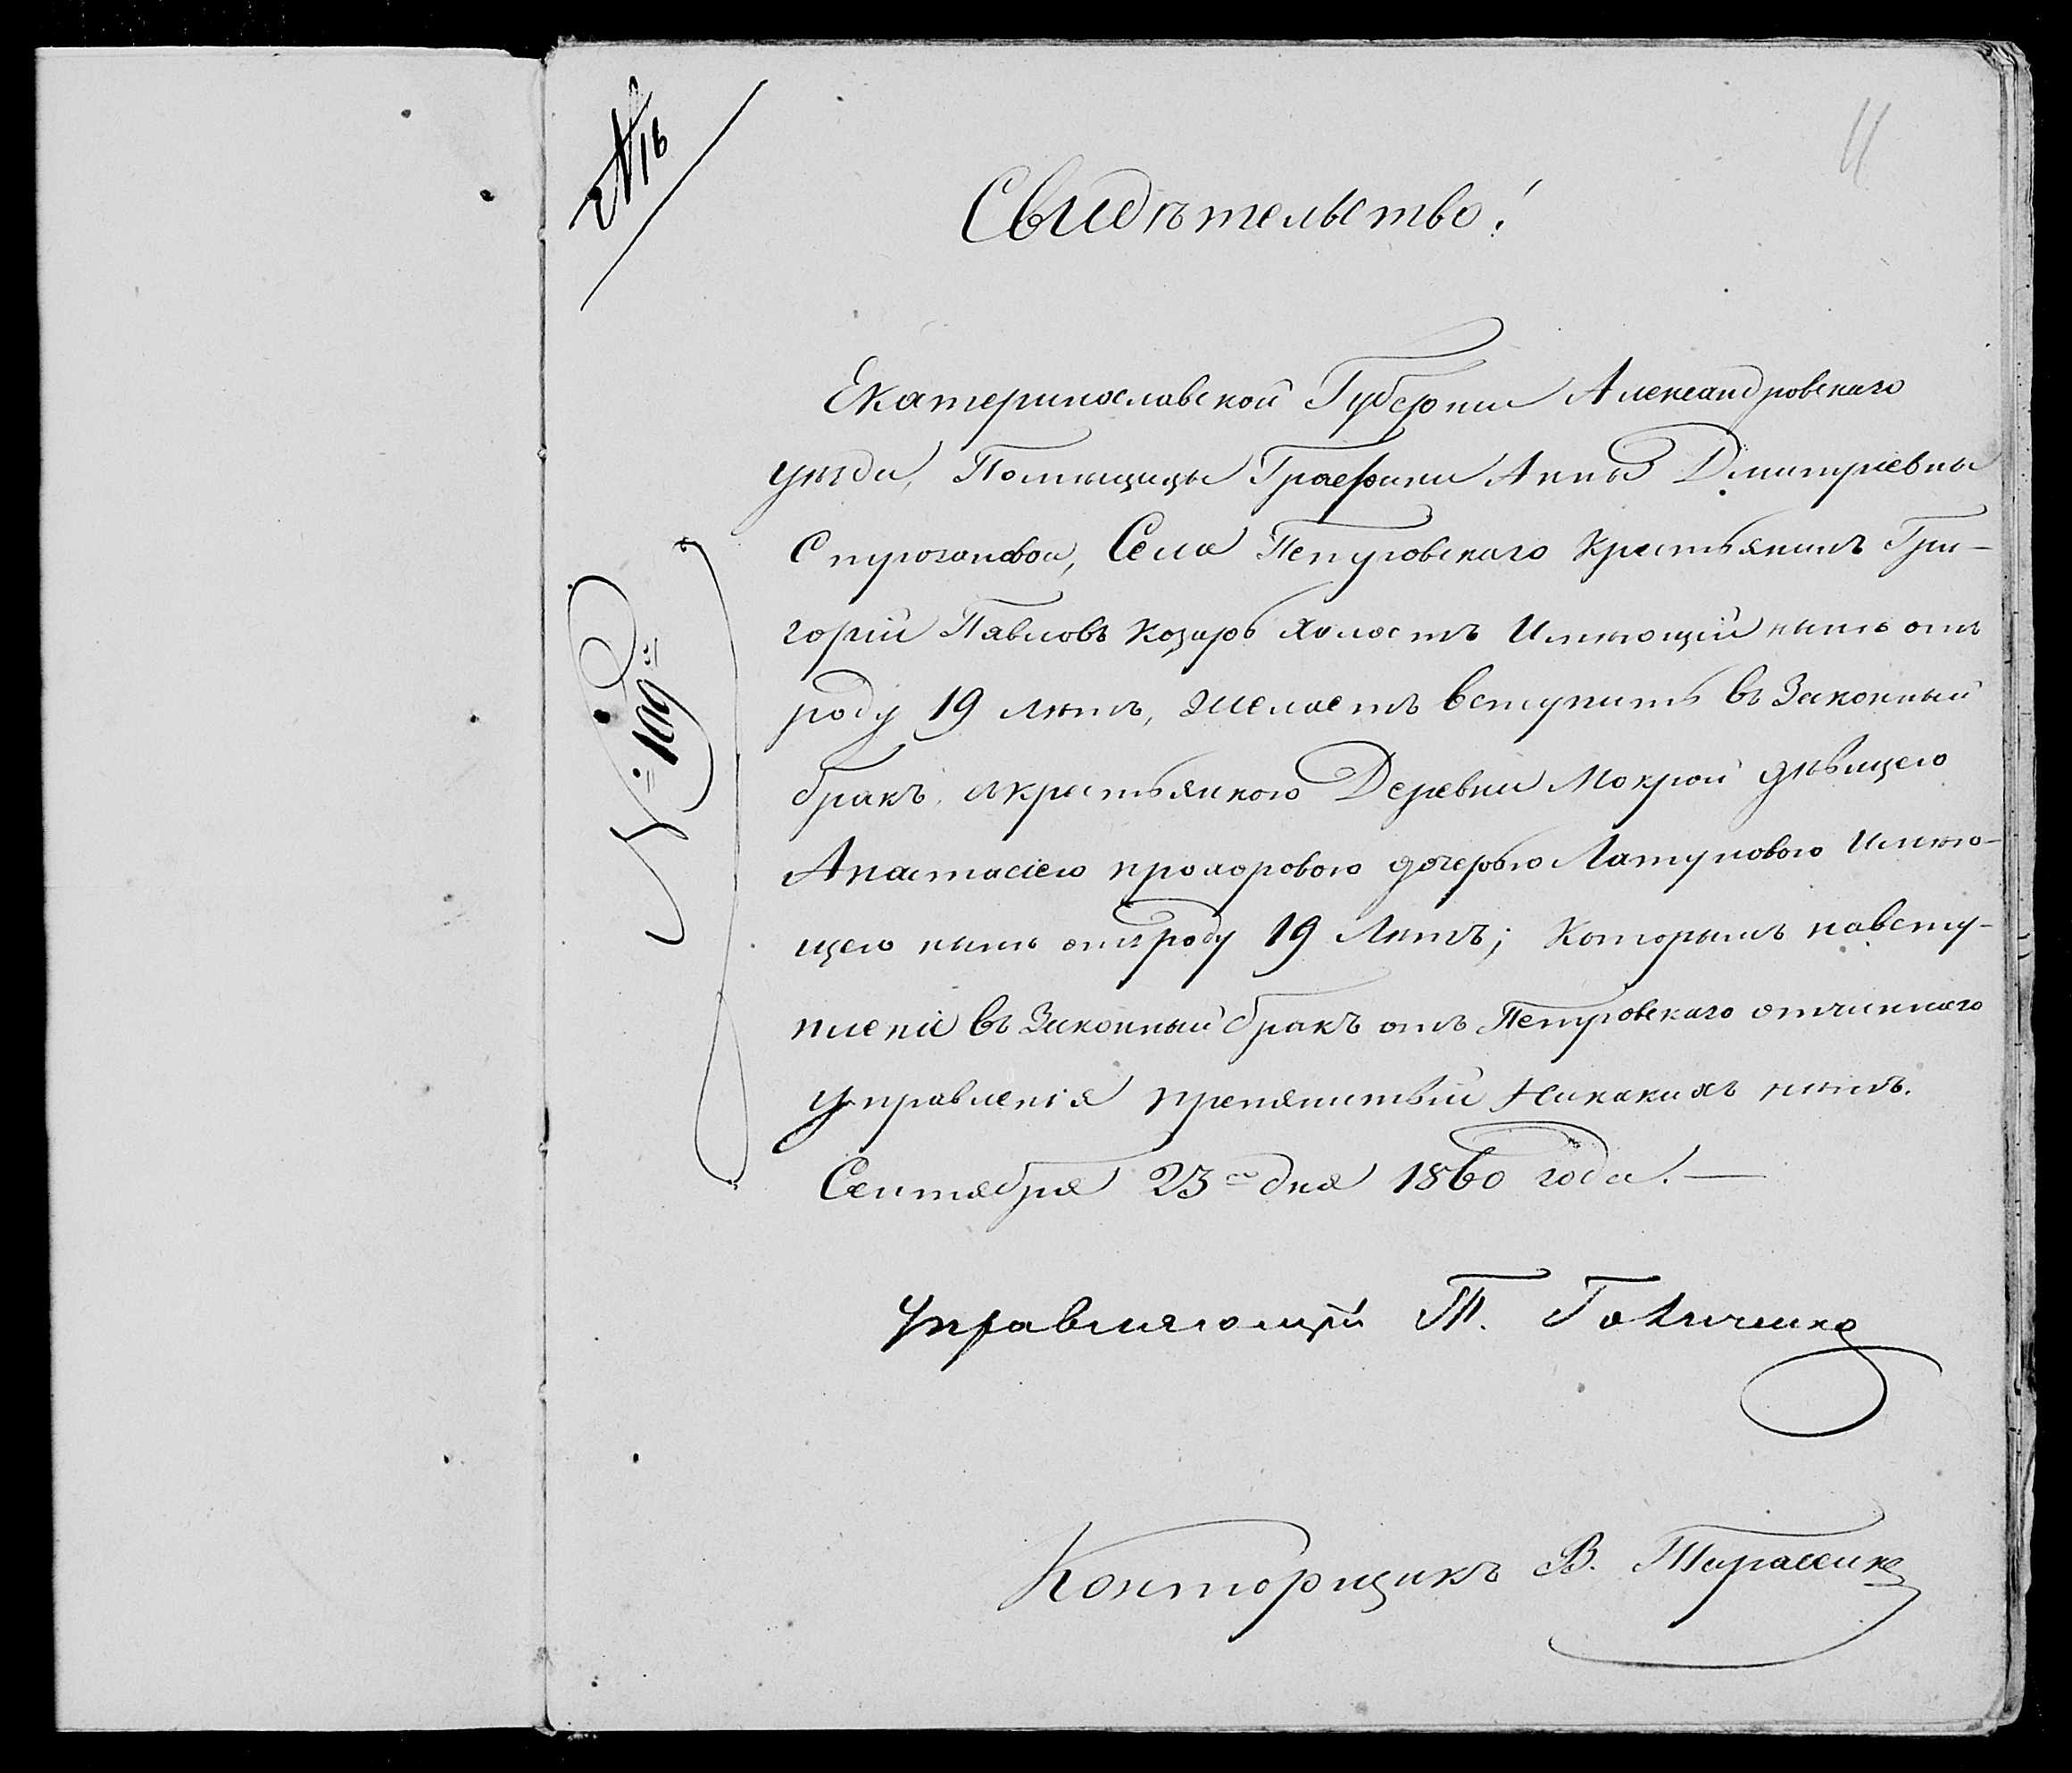 № 16
11
Свидѣтельство!
Екатеринославской Губерніи Александровскаго
уѣзда, Помѣщицы Графини Анны Дмитріевны
Строгановой, Села Петровскаго Крестьянинъ Гри-
горій Павловъ Козарь холостъ Имѣющій нынѣ отъ
роду 19 лѣтъ, желаетъ вступить въ Законный
бракъ, съ крестьянкою Деревни Мокрой дѣвицею
Анастасіею прохоровою дочерью Латуновою Имѣю-
щею нынѣ отъ роду 19 Лѣтъ; Которымъ на всту-
пленіе въ Законный бракъ отъ Петровскаго отчиннаго
Управленія препятствій Никакихъ нѣтъ.
Сентября 23го дня 1860 года. —
№ 109
Управляющій Т.
Конторщикъ В. Тарасенко